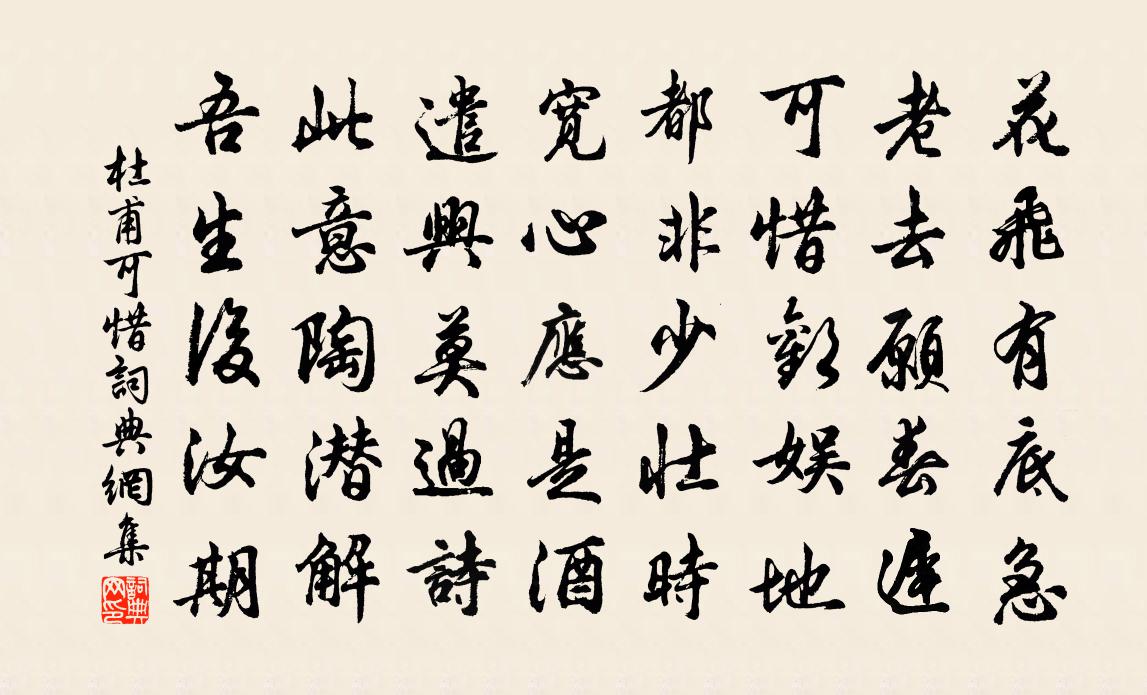 花飛有底急
老去願春遲
可惜歡娛地
都非少壯時
寬心應是酒
遣興莫過詩
此意陶潜解
吾生後汝期
杜甫可惜詞典網集
詞典網印